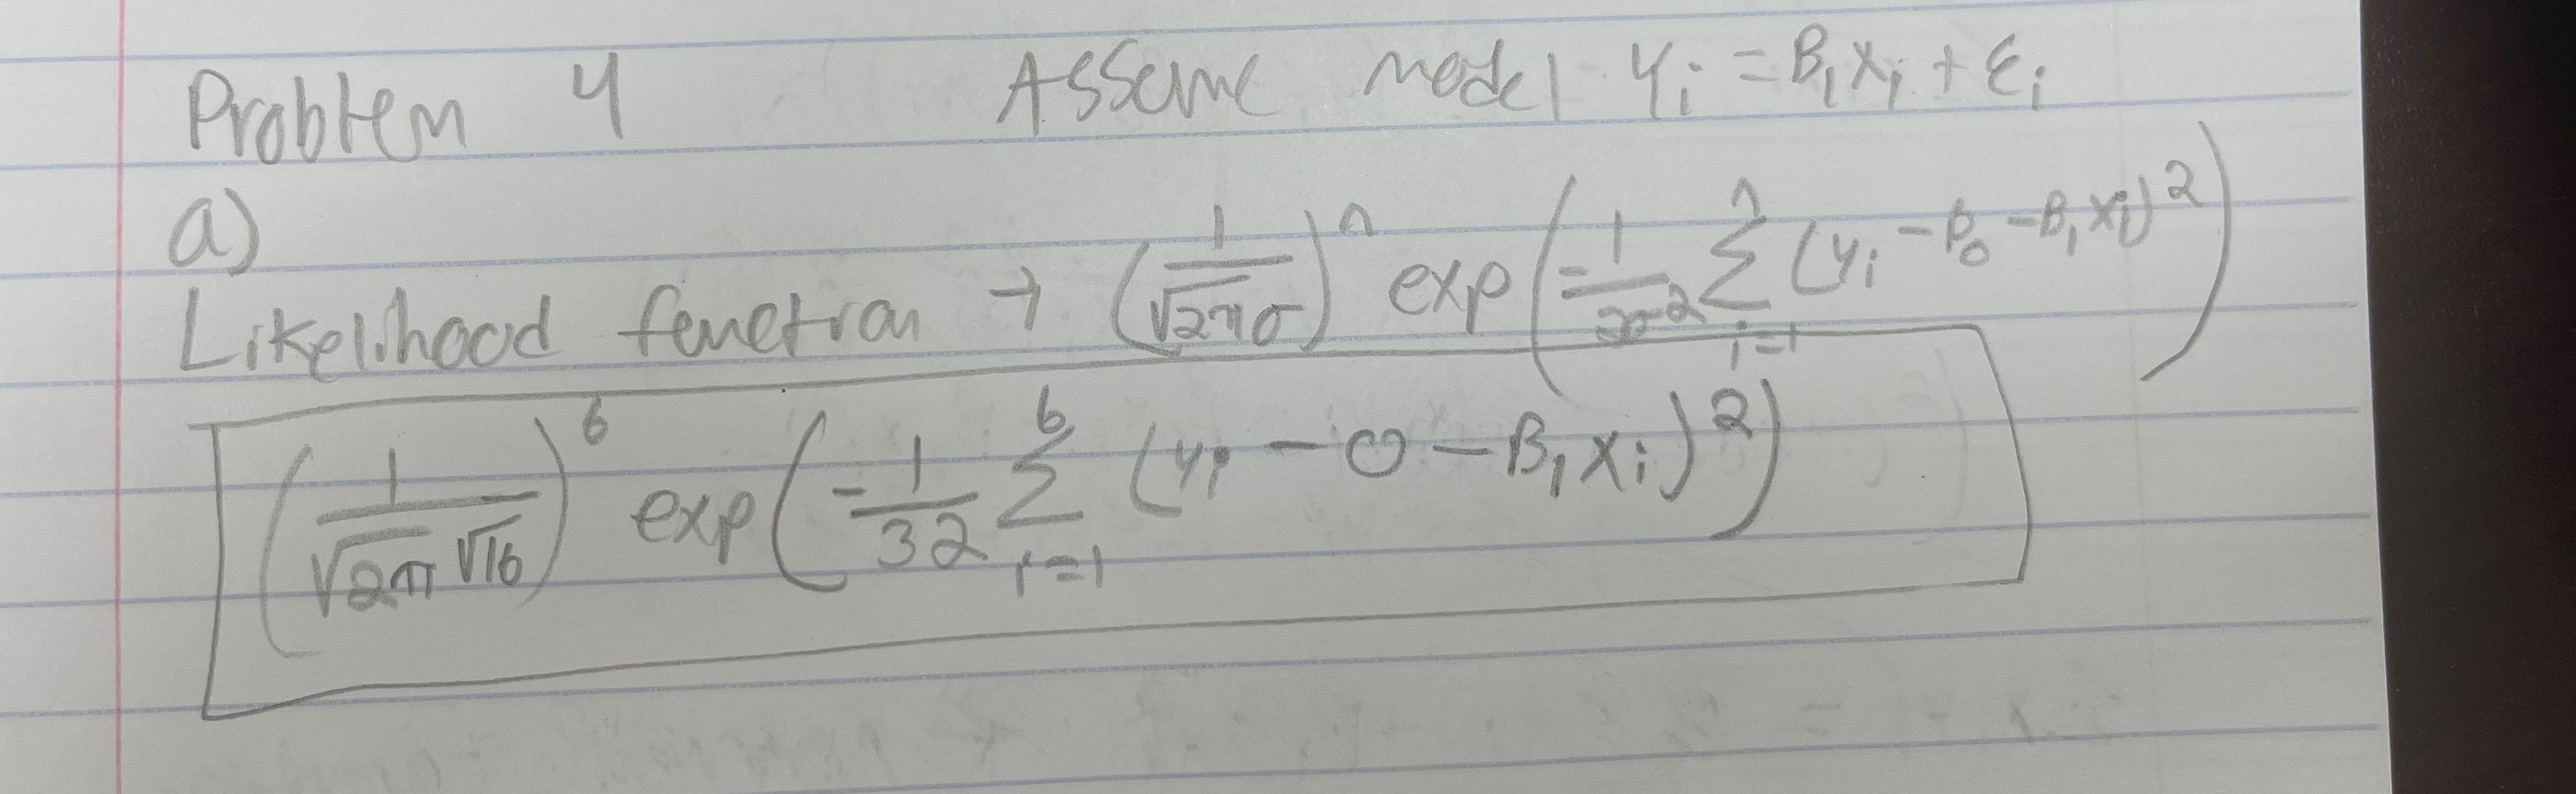 Problem 4 Assume model Yi = B₁xi + εi
a)
Likelihood function → (1/(√2π σ))ⁿ exp(-1/(2σ²) Σ_{i=1}^{n} (yi - β₀ - B₁xi)²)
(1/(√2π √16))⁶ exp(-1/32 Σ_{i=1}^{6} (yi - 0 - B₁xi)²)